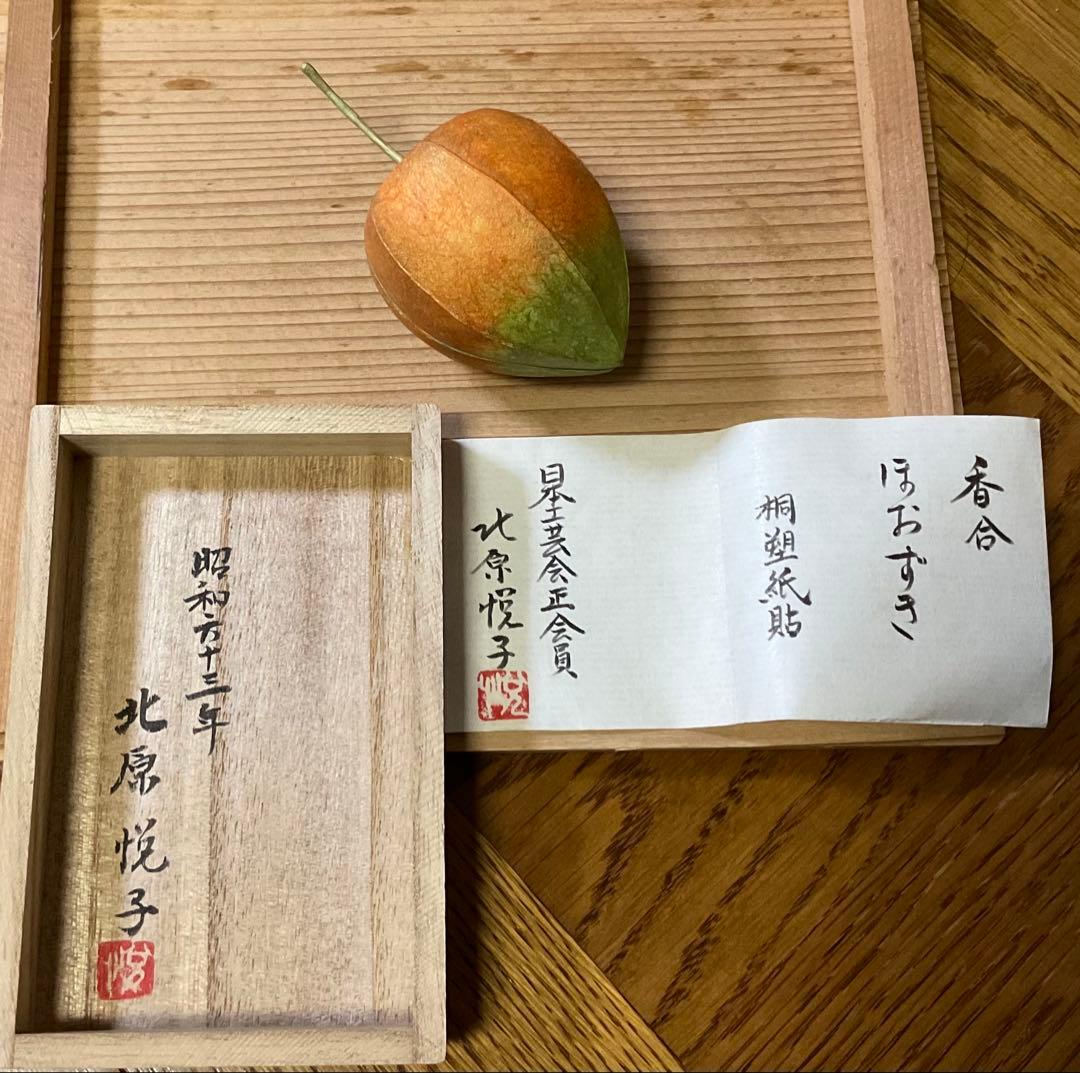 香合
ほおずき
桐塑紙貼
日本工芸会正会員
北原悦子
悦
昭和六十三年
北原悦子
悦